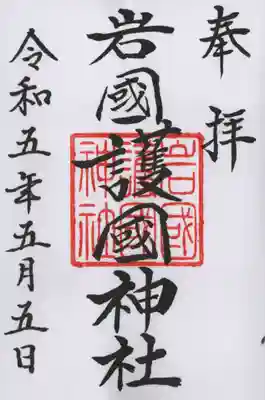 奉拝
岩國護國神社
岩國護國神社
令和五年五月五日